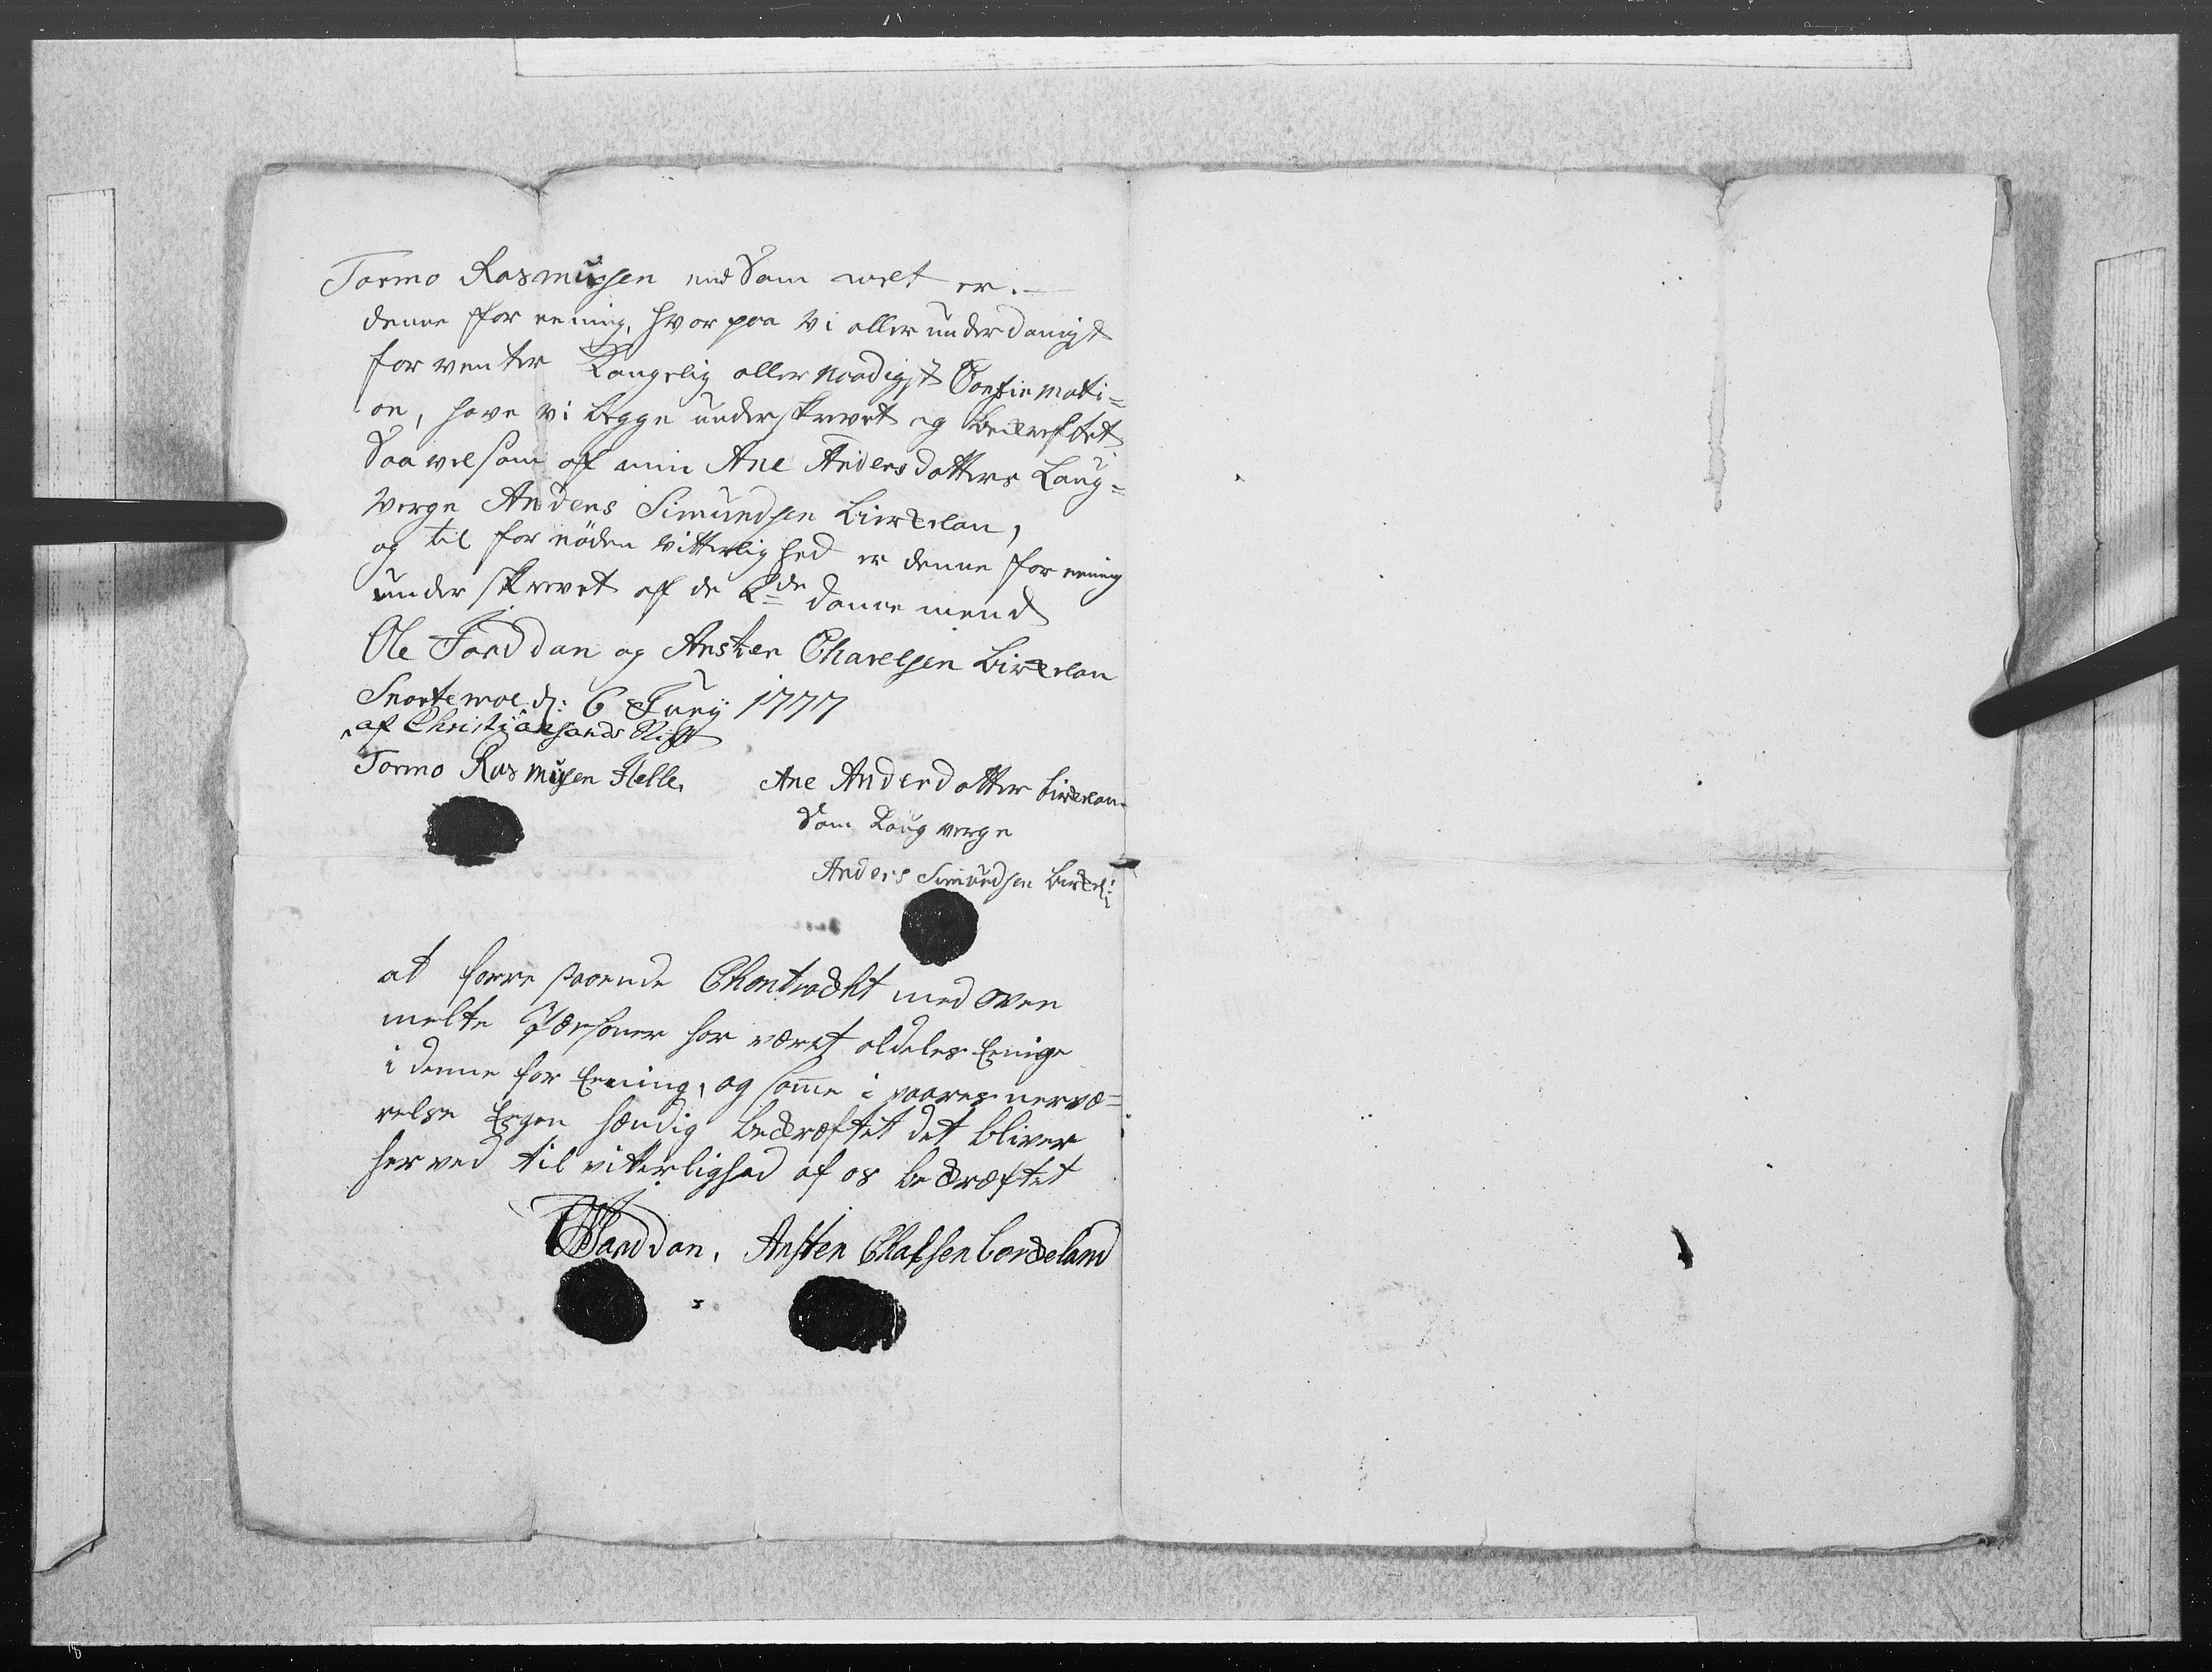 Tormo Rasmusen som welt er.
denne for eening, hvor paa Vi aller underdanigst
for venter Kongelig aller naadigst Confirmati=
on, have Vi begge underskrevet og bekreftet
Saa vel som af min Ane Andersdatters Laug=
Verge Anders Simundsen birkelan,
og til for nöden vitterlighed er denne for eening
under skrevet af de 2de danne mend
Ole Jorddan og Ansten Charelsen birkelan
Snartemoe d: 6 Juny 1777
af Christiansands Stift
Tormo Rasmusen Helle.
Ane Anderdatter birkelan.
Som Laug verge
Anders Simundsen birkel:
at forre staaende Chontrackt med oven
melte Personer har været aldeles Eenige
i denne for Eening, og same i vaares nervæ=
relse Egen hændig bekræftet det bliver
her ved til vitterlighed af os bekræftet
Jorddan. Ansten Chalsen berkeland